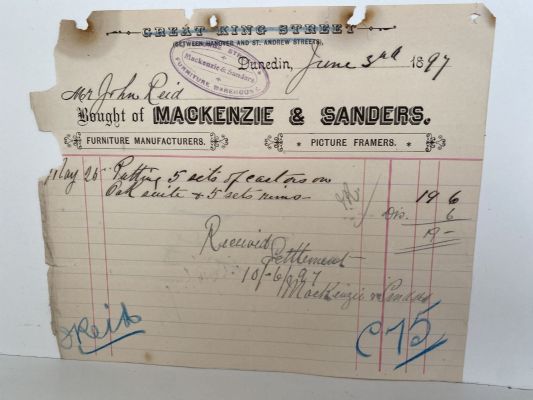 GREAT KING STREET
(BETWEEN HANOVER AND ST. ANDREW STREETS),
Mackenzie & Sanders
FURNITURE WAREHOUSE
Dunedin, June 3rd 1897
Mr John Reid
Bought of MACKENZIE & SANDERS.
FURNITURE MANUFACTURERS. * PICTURE FRAMERS.
May 26 Putting 5 sets of castors on
Oak suite & 5 sets rims 19 6
Dis. 6
19 -
Received
Settlement
10/6/97
MacKenzie & Sanders
J Reid C75